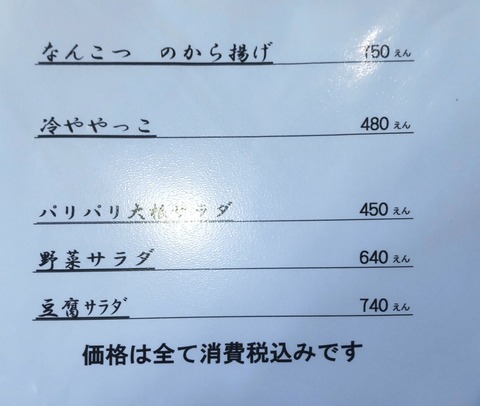 なんこつ　のから揚げ 750えん
冷ややっこ 480えん
パリパリ大根サラダ 450えん
野菜サラダ 640えん
豆腐サラダ 740えん
価格は全て消費税込みです